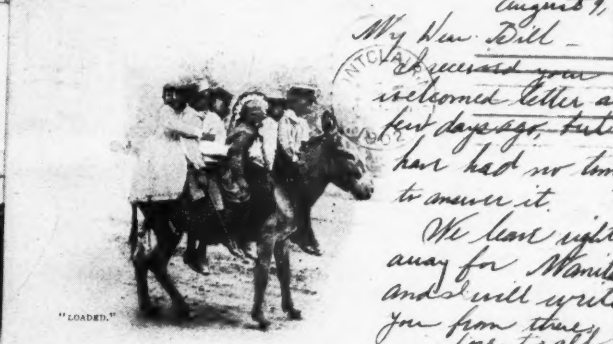 August 9,
My Dear Bill -
I received your
welcomed letter a
few days ago, but
have had no tim
to answer it.
We leave right
away for Manit
and I will write
you from there,
"LOADED."
NTCLAIR
1902